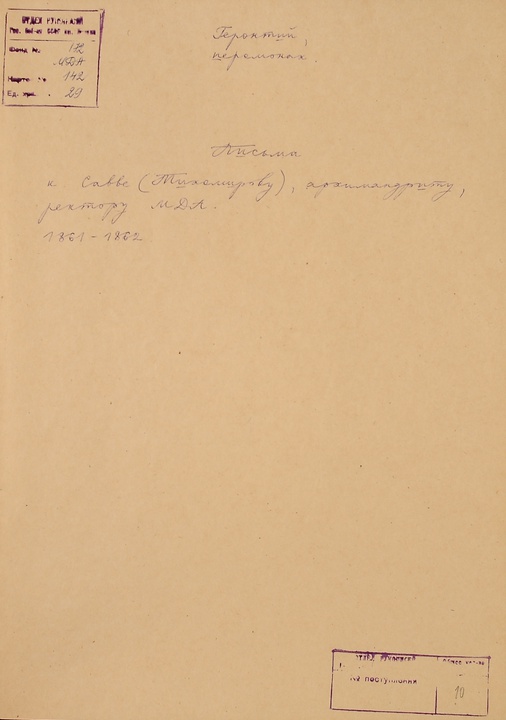 ОТДЕЛ РУКОПИСЕЙ
Гос. биб-ки СССР им. Ленина
Фонд № 172
МДА
Картон № 142
Ед. хран. 29
Геронтий,
иеромонах.
Письма
к Савве (Тихомирову), архимандриту,
ректору МДА.
1861-1862
ОТДЕЛ РУКОПИСЕЙ
№ поступления
10